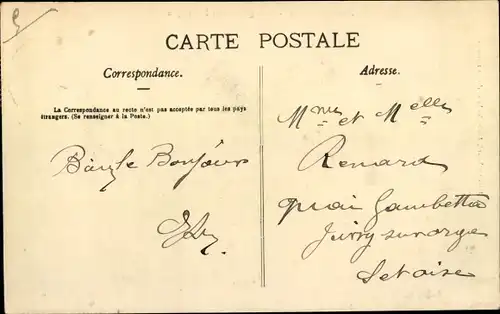 CARTE POSTALE
Correspondance.
La Correspondance au recto n'est pas acceptée par tous les pays
étrangers. (Se renseigner à la Poste.)
Bonjour
Adresse.
Mme et Melle
Renard
quai Gambetta
Juvisy sur orge
Set oise